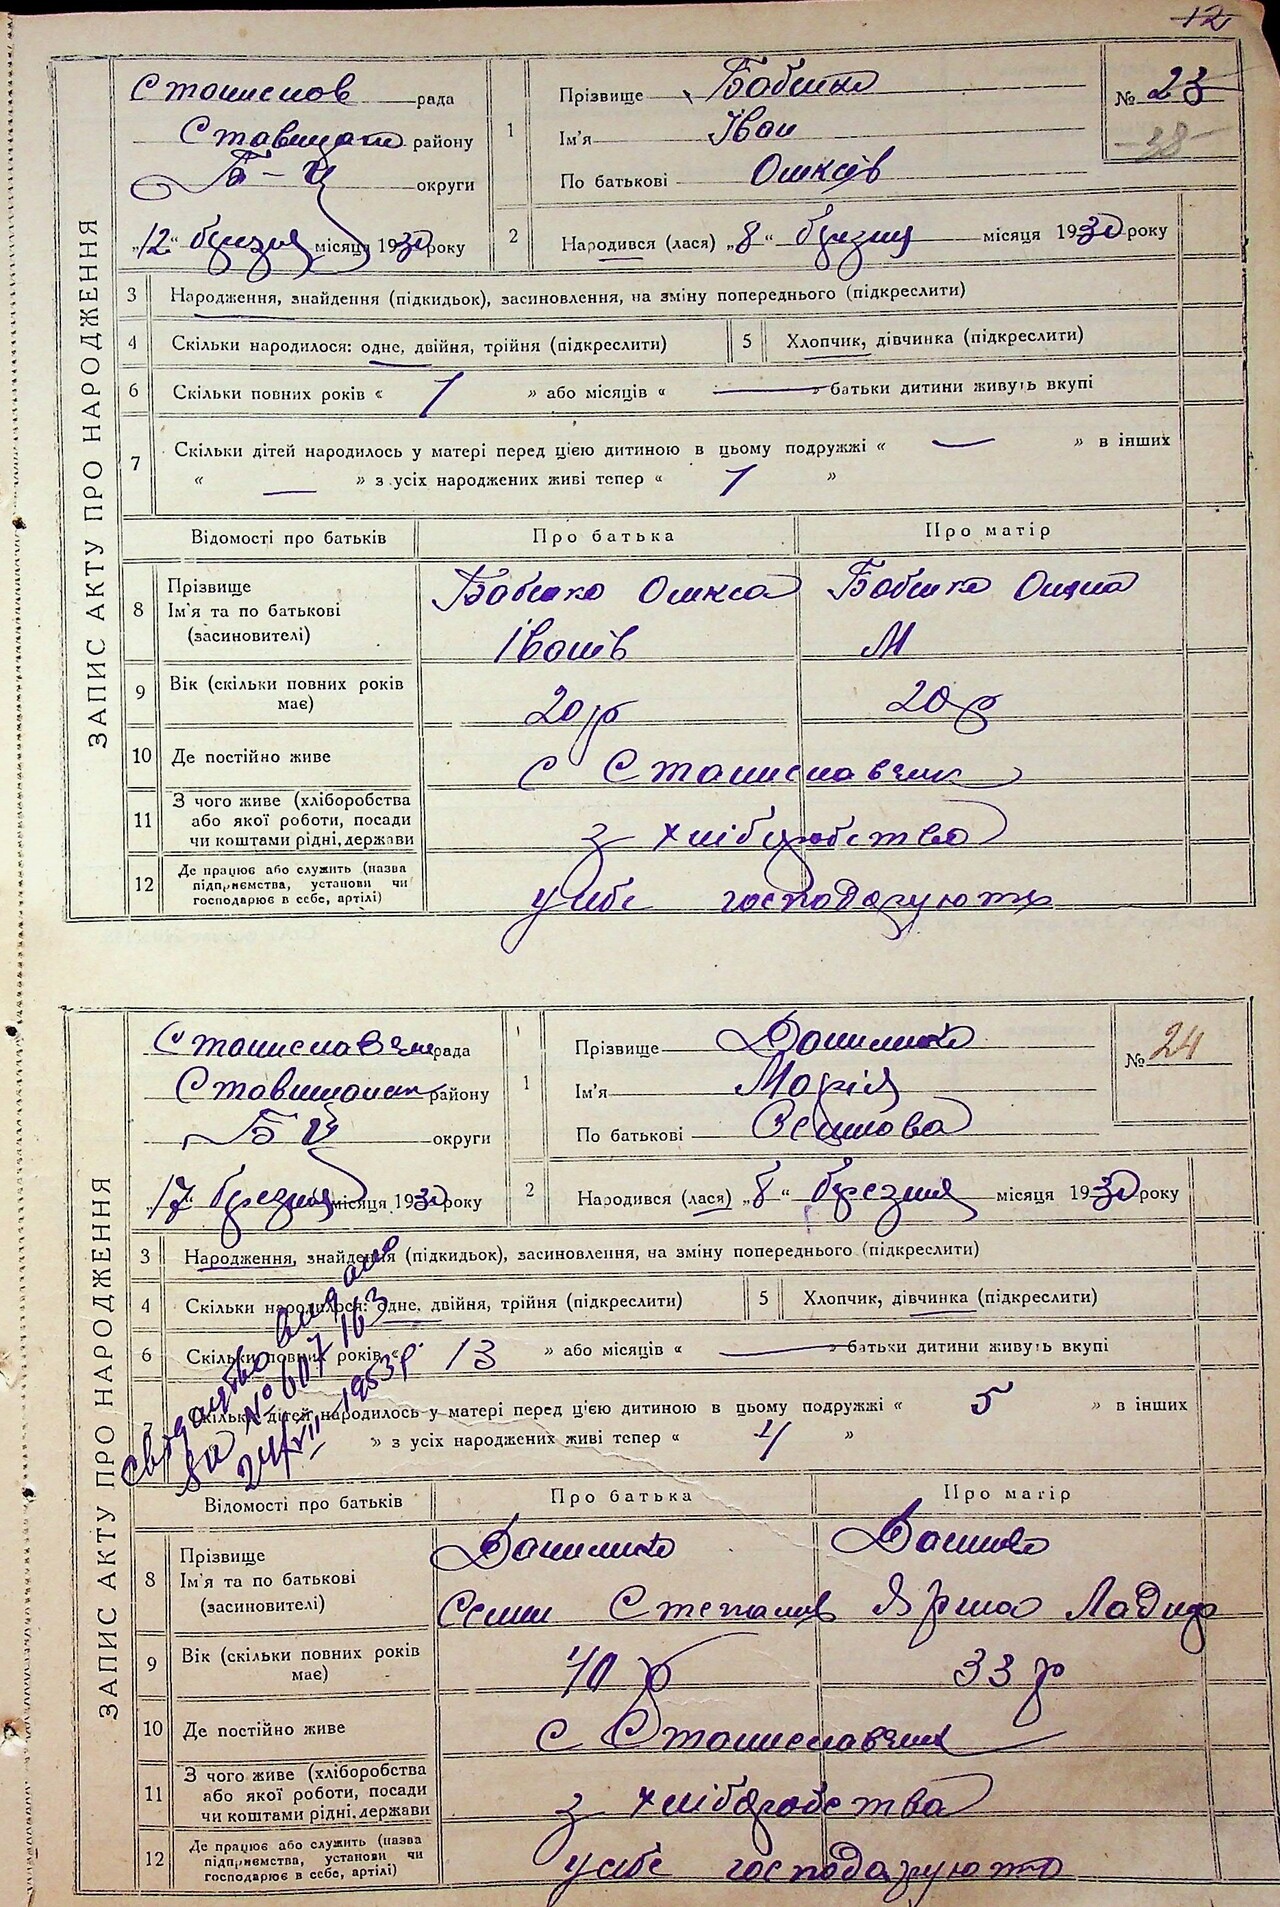 12
ЗАПИС АКТУ ПРО НАРОДЖЕННЯ
Станислов рада
Ставищан району
Б-Ц округи
„12“ березня місяця 1930 року
1
Прізвище Бабенко
Ім'я Іван
По батькові
№ 23
38
2
Народився (лася) „8“ березня місяця 1930 року
3 Народження, знайдення (підкидьок), засиновлення, на зміну попереднього (підкреслити)
4 Скільки народилося: одне, двійня, трійня (підкреслити)
5 Хлопчик, дівчинка (підкреслити)
6 Скільки повних років « 1 » або місяців « — » батьки дитини живуть вкупі
7 Скільки дітей народилось у матері перед цією дитиною в цьому подружжі « — » в інших
« — » з усіх народжених живі тепер « 1 »
Відомості про батьків Про батька Про матір
8 Прізвище
Ім'я та по батькові
(засиновителі)
Бабенко
Іванів
Бабенко
М
9 Вік (скільки повних років має) 20 р 20 р
10 Де постійно живе с Станиславчик
11 З чого живе (хліборобства або якої роботи, посади чи коштами рідні, держави з хліборобства
12 Де працює або служить (назва підприємства, установи чи господарює в себе, артілі) у себе господарують
ЗАПИС АКТУ ПРО НАРОДЖЕННЯ
Станиславчик рада
Ставищан району
Б Ц округи
„17“ березня місяця 1930 року
1
Прізвище Данилюк
Ім'я Марія
По батькові Семнова
№ 24
2
Народився (лася) „8“ березня місяця 1930 року
3 Народження, знайдення (підкидьок), засиновлення, на зміну попереднього (підкреслити)
4 Скільки народилося: одне, двійня, трійня (підкреслити)
5 Хлопчик, дівчинка (підкреслити)
6 Скільки повних років « 13 » або місяців « — » батьки дитини живуть вкупі
7 Скільки дітей народилось у матері перед цією дитиною в цьому подружжі « 5 » в інших
» з усіх народжених живі тепер « 4 »
за № 607163
24/VII 1953 р.
Відомості про батьків Про батька Про матір
8 Прізвище
Ім'я та по батькові
(засиновителі)
Семен Степанів
9 Вік (скільки повних років має) 40 р 33 р
10 Де постійно живе с Станиславчик
11 З чого живе (хліборобства або якої роботи, посади чи коштами рідні, держави з хліборобства
12 Де працює або служить (назва підприємства, установи чи господарює в себе, артілі) у себе господарюють